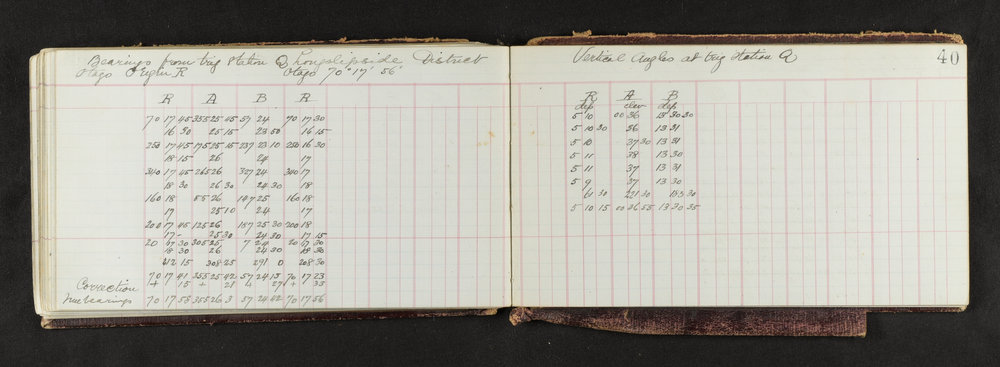 Bearings from trig station Q Longslipside District
Otago Origin R Otago 70° 17' 56"
R A B R
70 17 45 355 25 45 57 24 70 17 30
16 30 25 15 23 50 16 15
250 17 45 175 25 15 237 23 10 250 16 30
18 15 26 24 17
340 17 45 265 26 327 24 340 17
18 30 26 30 24 30 18
160 18 85 26 147 25 160 18
17 25 10 24 17
200 17 45 125 26 187 25 30 200 18
17 - 25 30 24 30 17 15
20 17 30 305 25 7 24 20 17 30
18 30 26 24 30 18 30
212 15 308 25 291 0 208 30
70 17 41 355 25 42 57 24 15 70 17 23
Correction + 15 + 21 + 27 + 33
True bearings 70 17 56 355 26 3 57 24 42 70 17 56
Vertical Angles at trig station Q
40
R A B
dep elev dep
5 10 00 36 13 30 30
5 10 30 36 13 31
5 10 37 30 13 31
5 11 38 13 30
5 11 37 13 31
5 9 37 13 30
61 30 221 30 183 30
5 10 15 00 36 55 13 30 35